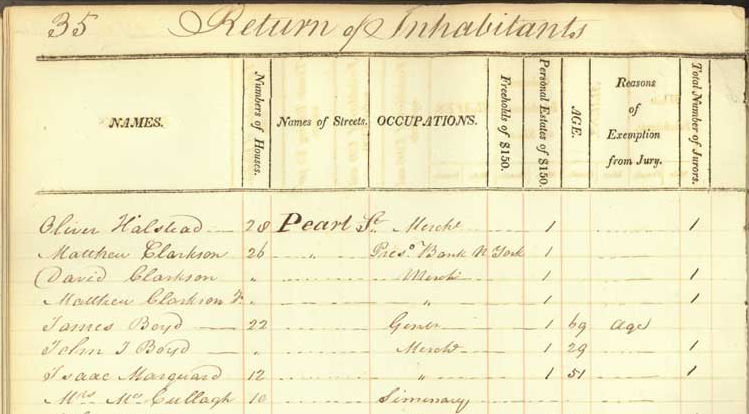 35 Return of Inhabitants
NAMES. Numbers of Houses. Names of Streets. OCCUPATIONS. Freeholds of $150. Personal Estates of $150. AGE. Reasons of Exemption from Jury. Total Number of Jurors.
Oliver Halstead 28 Pearl St Mercht 1 1
Matthew Clarkson 26 " Prest Bank N York 1
David Clarkson " Mercht 1 1
Matthew Clarkson Jr " " 1 1
James Boyd 22 1 69 Age
John I Boyd " Mercht 1 29 1
Isaac Marquard 12 " 1 51 1
Mrs Mc Cullagh 10 Siminary